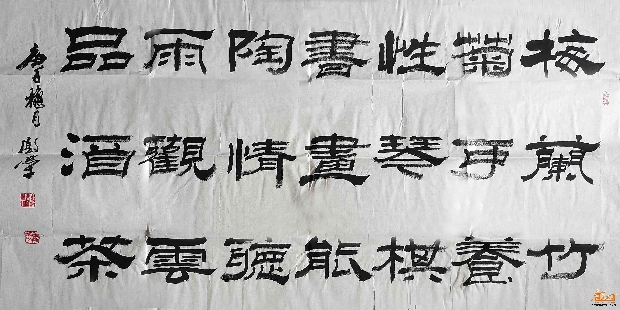 梅蘭竹
菊可養
性琴棋
書畫能
陶情聽
雨觀雲
品酒茶
庚子月